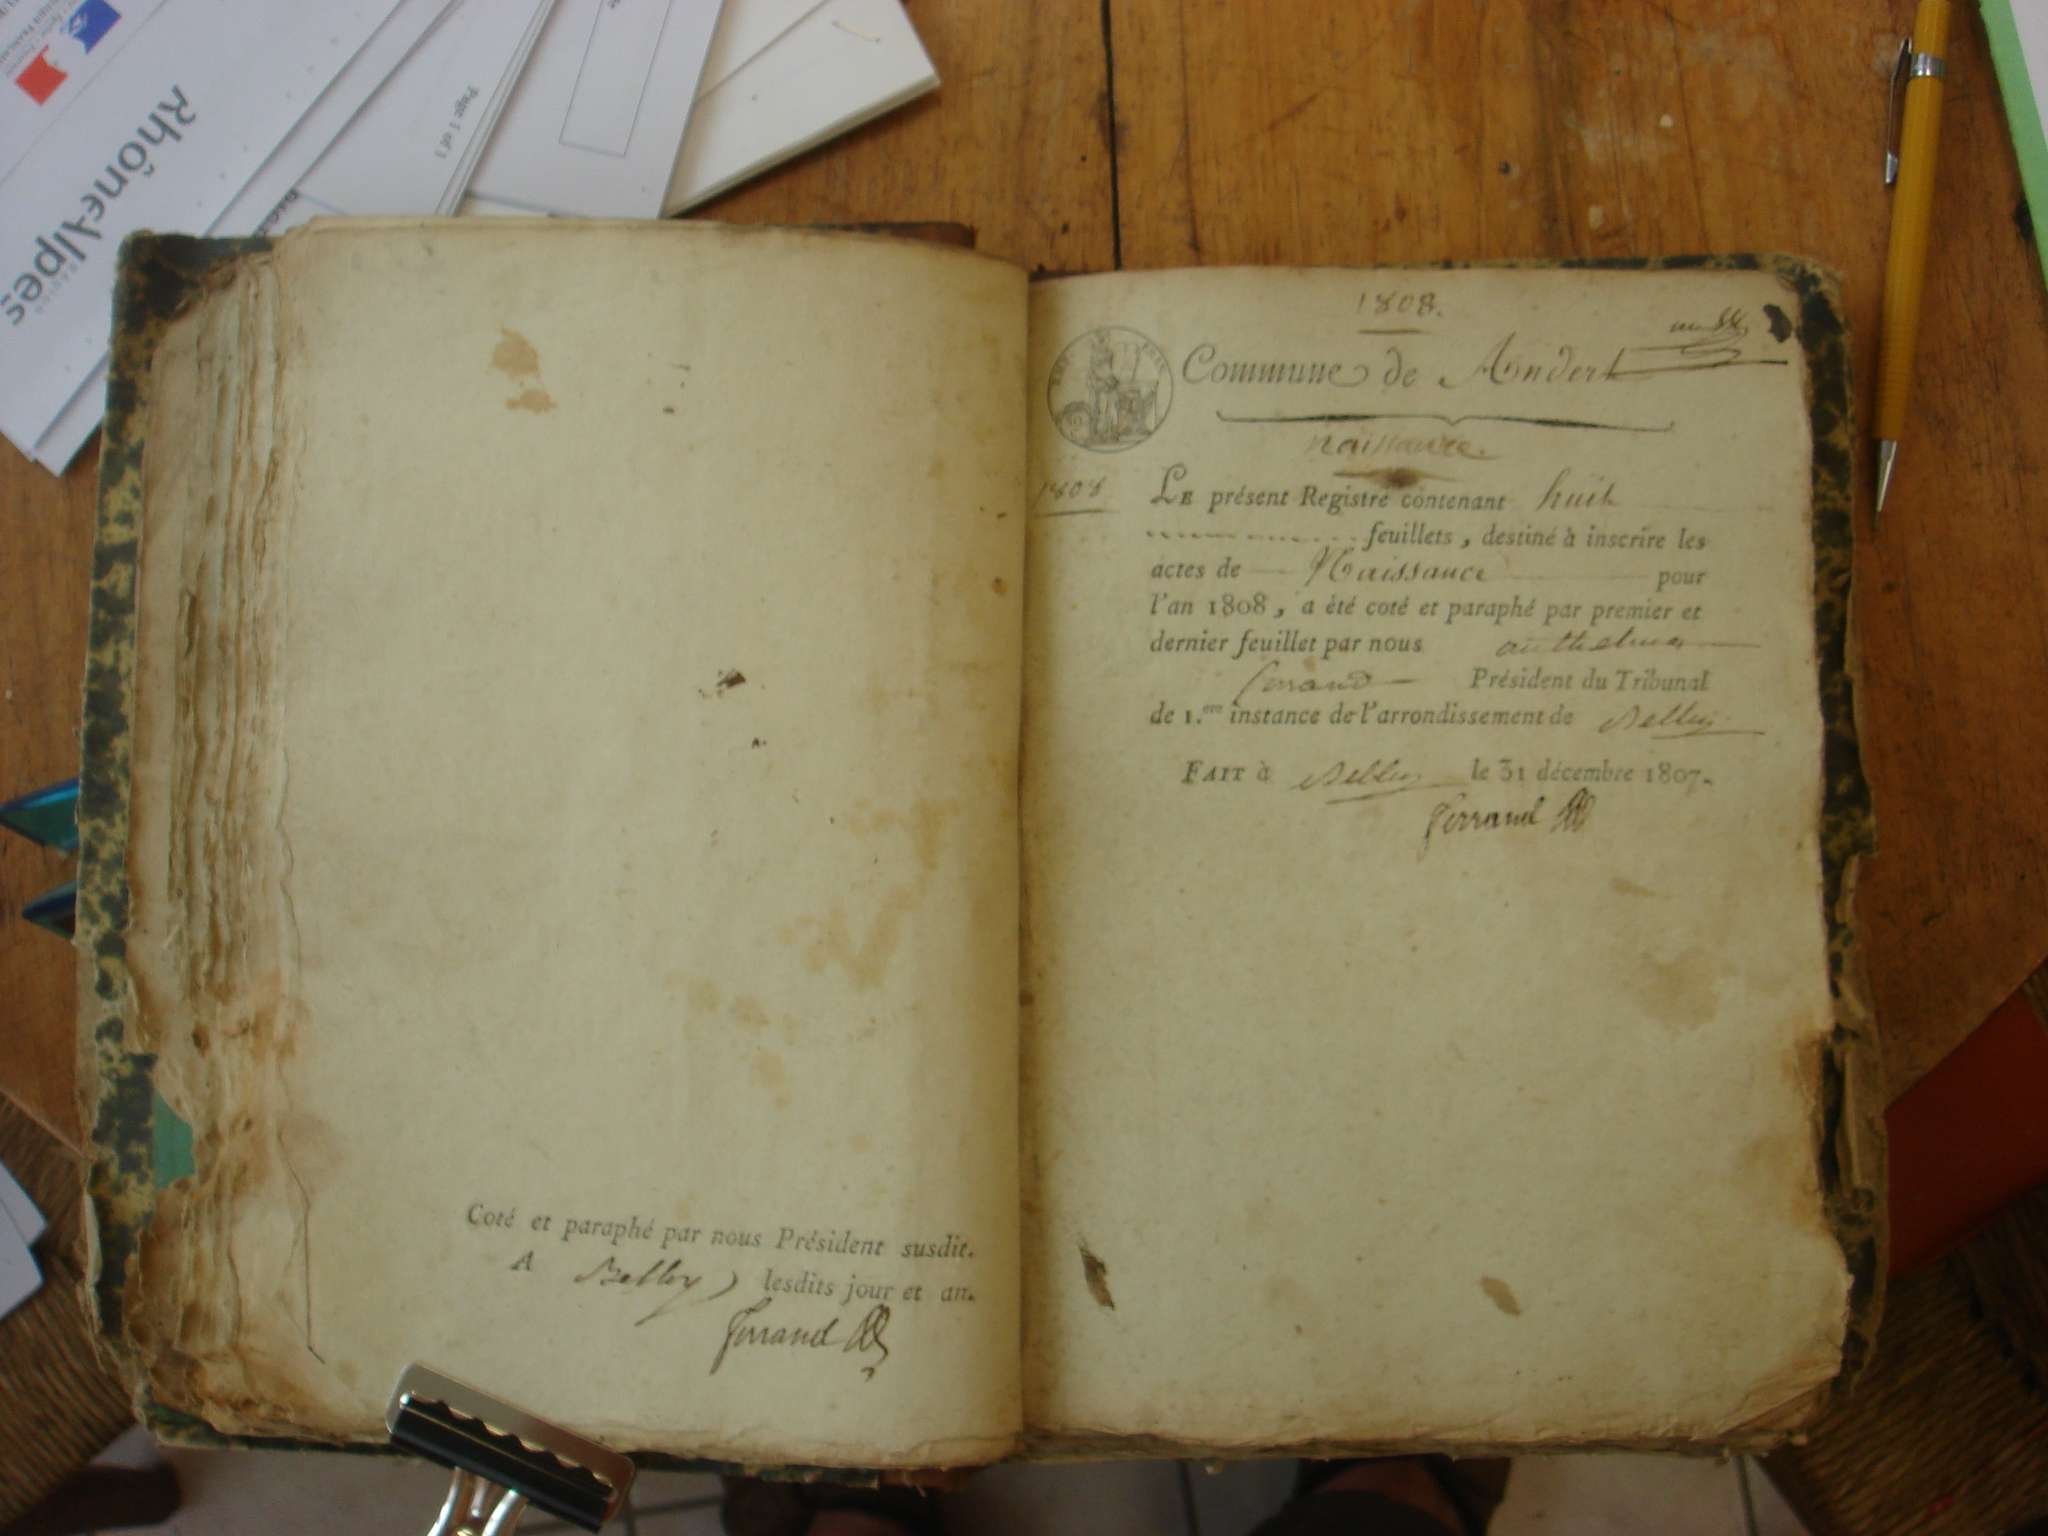 Rhône-Alpes
Page 1 of 1
Coté et paraphé par nous Président susdit.
A Belley lesdits jour et an.
Ferrand
1808.
Commune de Andert
naissance.
1808
LE présent Registre contenant huit
feuillets, destiné à inscrire les
actes de Naissance pour
l'an 1808, a été coté et paraphé par premier et
dernier feuillet par nous anthelme
ferrand Président du Tribunal
de 1.ere instance de l'arrondissement de Belley
FAIT à Belley le 31 décembre 1807.
Ferrand